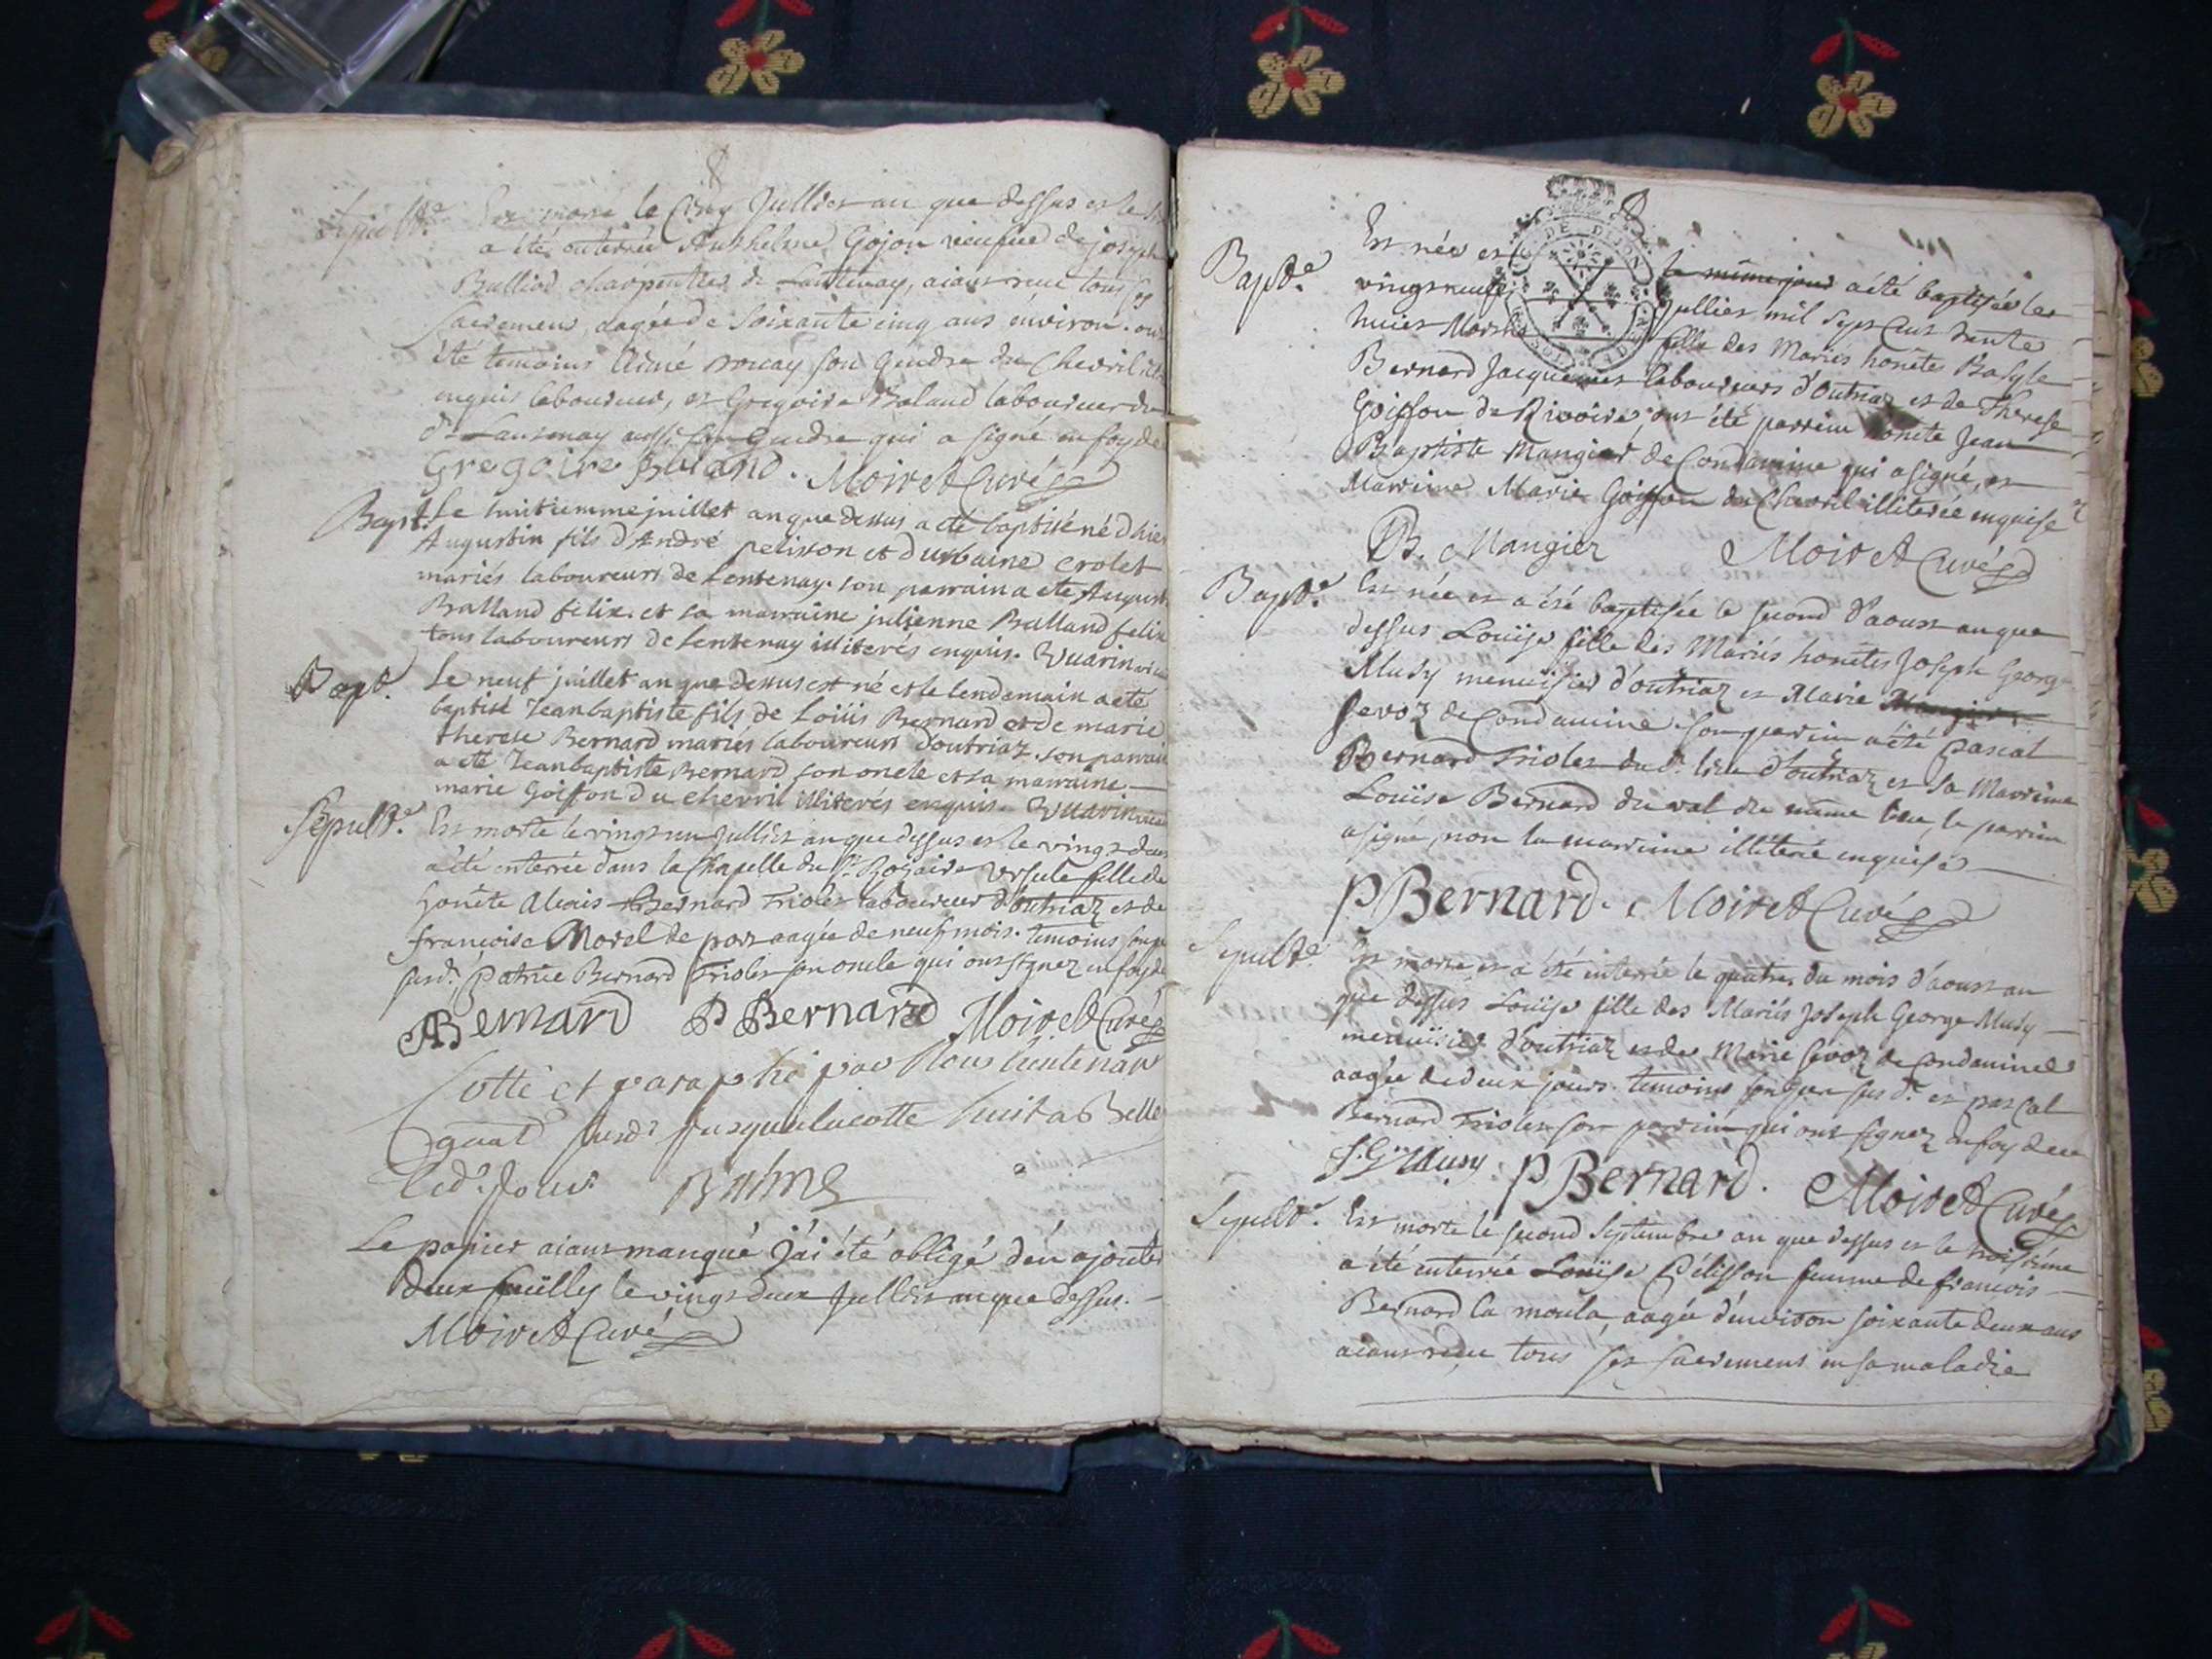 8
Sepultre Est morte le Cinq Jullier an que dessus et le
a été enterrée Anthelme Gojon vieufue de joseph
Bulliod charpentier de Lantenay, aiant receu tous ses
sacremens, aagée de soixante cinq ans environ. ont
été temoins Aimé son Gendre du Chevril
enquis laboureur, et Gregoire Baland laboureur du
dt Lantenay aussi son Gendre qui a signé en foy de
Gregoire Buland. Moiret Curé
Bapt. Le huitiemme juillet an que dessus a eté baptisé né d'hier
Augustin fils d'André pelisson et d'urbaine crolet
mariés laboureurs de Lentenay. son parrain a ete August
Balland felix. et sa marraine julienne Balland felix
tous laboureurs de Lentenay illiterés enquis. Vuarin vicaire
Bapt. Le neuf juillet an que dessus est né et le lendemain a eté
baptisé Jean baptiste fils de Loüis Bernard et de marie
therese Bernard mariés laboureurs d'outriaz. son parrain
a eté Jean baptiste Bernard son oncle et sa marraine
marie Goiffon du chevril illiterés enquis. Vuarin vicaire
Sepultre Est morte le vingt un Jullier an que dessus et le vingt deux
a été enterrée dans la Chapelle du St Rosaire Ursule fille de
honête Alexis Bernard Triolet laboureur d'outriaz et de
francoise Morel de porz aagée de neuf mois. temoins son pe
susdt. Patrice Bernard Triolet son oncle qui ont signez en foy de
ABernard P Bernard Moiret Curé
Cotté et paraphé par Nous Lieutenant
gnal susdt jusqu'a la cotte huit a Belle
led. jour.
Le papier aiant manqué j'ai été obligé d'en ajouter
deux feuilles le vingt deux Jullier an que dessus.
Moiret Curé
DE DIJON
Bapt.e Est née et le
le même jour a été baptisée les
vingt neuf Jullier mil sept cent trente
huict Marthe fille des Mariés honêtes Basyle
Bernard Jacquemier laboureurs d'outriaz et de Therese
Goiffon de Rivoire, ont été parrein honête Jean
Baptiste Mangier de Condamine qui a signé, et
Marreine Marie Goiffon du Chevril illiterée enquise
JB. Mangier Moiret Curé
Bapt.e Est née et a été baptisée le second d'aoust an que
dessus Loüise fille des Mariés honêtes Joseph George
Musy menuisier d'outriaz et Marie Mangier
Sevoz de Condamine. son parrein a été pascal
Bernard Triolet du dt. lieu d'outriaz et sa Marreine
Loüise Bernard du val du même lieu, le parrein
a signé, non la marreine illiterée enquise
PBernard. Moiret Curé
Sepultre Est morte et a été enterrée le quatre du mois d'aoust an
que dessus Loüise fille des Mariés Joseph George Musy
menuisier d'outriaz et de Marie Sevoz de Condamine
aagée de deux jours. temoins son pere susdt. et pascal
Bernard Triolet son parrein qui ont signez en foy de ce
J.G. Musy. PBernard. Moiret Curé
Sepultre Est morte le second Septembre an que dessus et le troisième
a été enterrée Loüise Pelisson femme de francois
Bernard la moula, aagée d'environ soixante deux ans
aiant receu tous ses sacremens en sa maladie